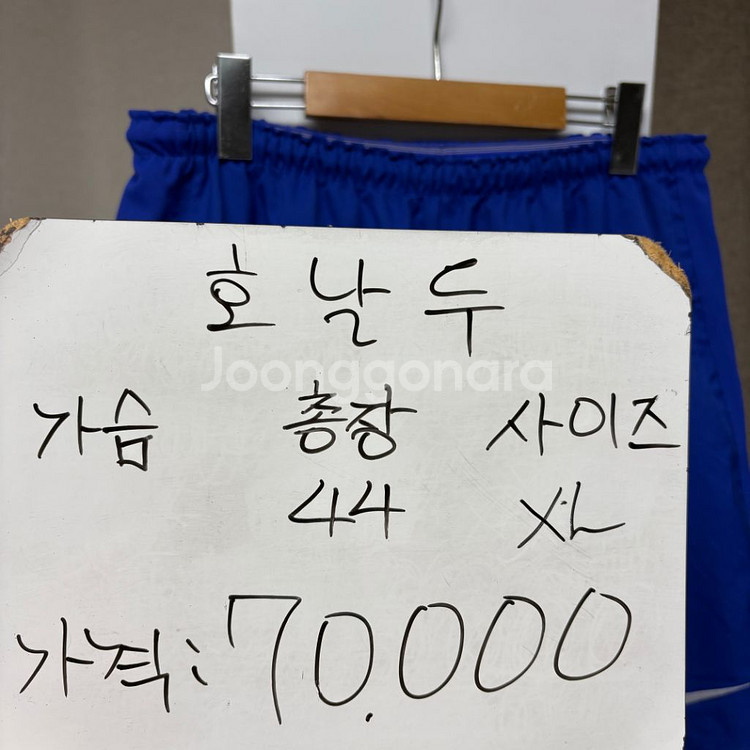 호날두
Joonggonara
가슴 총장 사이즈
44 XL
가격: 70.000